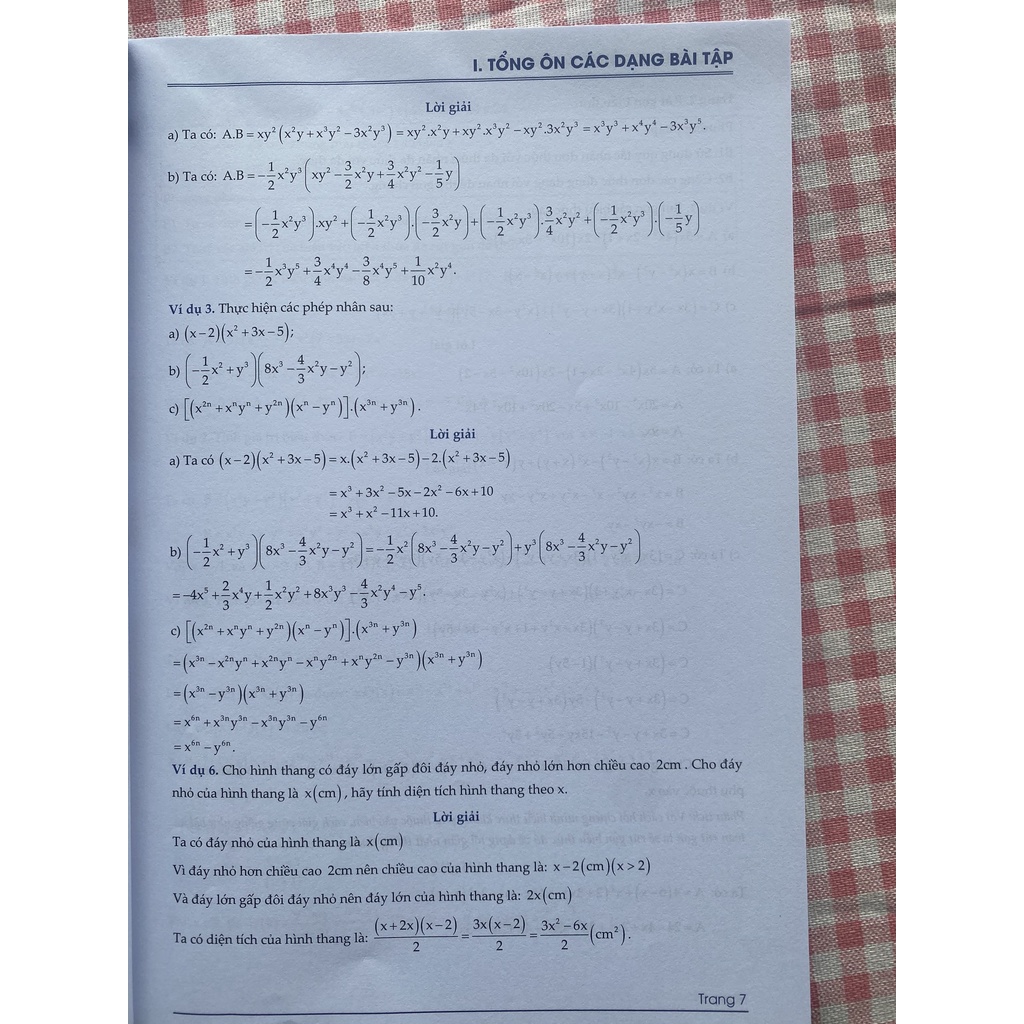 I. TỔNG ÔN CÁC DẠNG BÀI TẬP
Lời giải
a) Ta có: A.B = xy²(x²y + x³y² − 3x²y³) = xy².x²y + xy².x³y² − xy².3x²y³ = x³y³ + x⁴y⁴ − 3x³y⁵.
b) Ta có: A.B = −1/2x²y³(xy² − 3/2x²y + 3/4x²y² − 1/5y)
= (−1/2x²y³).xy² + (−1/2x²y³).(−3/2x²y) + (−1/2x²y³).3/4x²y² + (−1/2x²y³).(−1/5y)
= −1/2x³y⁵ + 3/4x⁴y⁴ − 3/8x⁴y⁵ + 1/10x²y⁴.
Ví dụ 3. Thực hiện các phép nhân sau:
a) (x − 2)(x² + 3x − 5);
b) (−1/2x² + y³)(8x³ − 4/3x²y − y²);
c) [(x²ⁿ + xⁿyⁿ + y²ⁿ)(xⁿ − yⁿ)].(x³ⁿ + y³ⁿ).
Lời giải
a) Ta có (x − 2)(x² + 3x − 5) = x.(x² + 3x − 5) − 2.(x² + 3x − 5)
= x³ + 3x² − 5x − 2x² − 6x + 10
= x³ + x² − 11x + 10.
b) (−1/2x² + y³)(8x³ − 4/3x²y − y²) = −1/2x²(8x³ − 4/3x²y − y²) + y³(8x³ − 4/3x²y − y²)
= −4x⁵ + 2/3x⁴y + 1/2x²y² + 8x³y³ − 4/3x²y⁴ − y⁵.
c) [(x²ⁿ + xⁿyⁿ + y²ⁿ)(xⁿ − yⁿ)].(x³ⁿ + y³ⁿ)
= (x³ⁿ − x²ⁿyⁿ + x²ⁿyⁿ − xⁿy²ⁿ + xⁿy²ⁿ − y³ⁿ)(x³ⁿ + y³ⁿ)
= (x³ⁿ − y³ⁿ)(x³ⁿ + y³ⁿ)
= x⁶ⁿ + x³ⁿy³ⁿ − x³ⁿy³ⁿ − y⁶ⁿ
= x⁶ⁿ − y⁶ⁿ.
Ví dụ 6. Cho hình thang có đáy lớn gấp đôi đáy nhỏ, đáy nhỏ lớn hơn chiều cao 2cm . Cho đáy
nhỏ của hình thang là x(cm), hãy tính diện tích hình thang theo x.
Lời giải
Ta có đáy nhỏ của hình thang là x(cm)
Vì đáy nhỏ hơn chiều cao 2cm nên chiều cao của hình thang là: x − 2(cm)(x > 2)
Và đáy lớn gấp đôi đáy nhỏ nên đáy lớn của hình thang là: 2x(cm)
Ta có diện tích của hình thang là: (x + 2x)(x − 2)/2 = 3x(x − 2)/2 = (3x² − 6x)/2 (cm²).
Trang 7